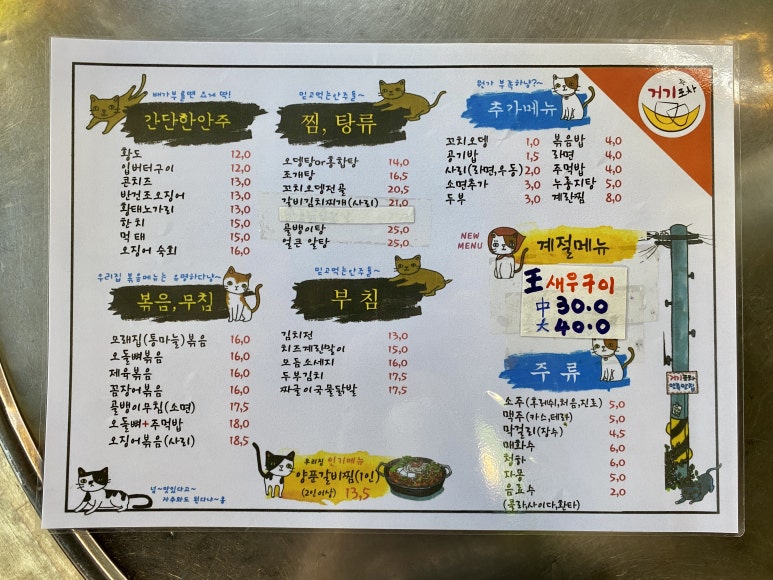 배가부를땐 요게 딱!
간단한안주
황도 12,0
입버터구이 12,0
콘치즈 13,0
반건조오징어 13,0
황태노가리 13,0
한치 15,0
먹태 15,0
오징어 숙회 16,0
믿고먹는안주들~
찜, 탕류
오뎅탕or홍합탕 14,0
조개탕 16,5
꼬치오뎅전골 20,5
갈비김치찌개(사리) 21,0
골뱅이탕 25,0
얼큰 알탕 25,0
뭔가 부족하냥?~
추가메뉴
꼬치오뎅 1,0
공기밥 1,5
사리(라면,우동) 2,0
소면추가 3,0
두부 3,0
볶음밥 4,0
라면 4,0
주먹밥 4,0
누룽지탕 5,0
계란찜 8,0
거기포차
우리집 볶음메뉴는 유명하다냥~
볶음,무침
모래집(통마늘)볶음 16,0
오돌뼈볶음 16,0
제육볶음 16,0
꼼장어볶음 16,0
골뱅이무침(소면) 17,5
오돌뼈+주먹밥 18,0
오징어볶음(사리) 18,5
믿고먹는안주들~
부 침
김치전 13,0
치즈계란말이 15,0
모듬소세지 16,0
두부김치 17,5
짜글이국물닭발 17,5
NEW MENU
계절메뉴
王새우구이
中 30.0
大 40.0
주 류
소주(후레쉬,처음,진로) 5,0
맥주(카스,테라) 5,0
막걸리(장수) 4,5
매화수 6,0
청하 6,0
자몽 5,0
음료수 2,0
(콜라,사이다,환타)
거기포차
우리집 인기메뉴
양푼갈비찜(1인)
(2인이상) 13,5
넘~맛있다고~
자주와도 된다냐~옹